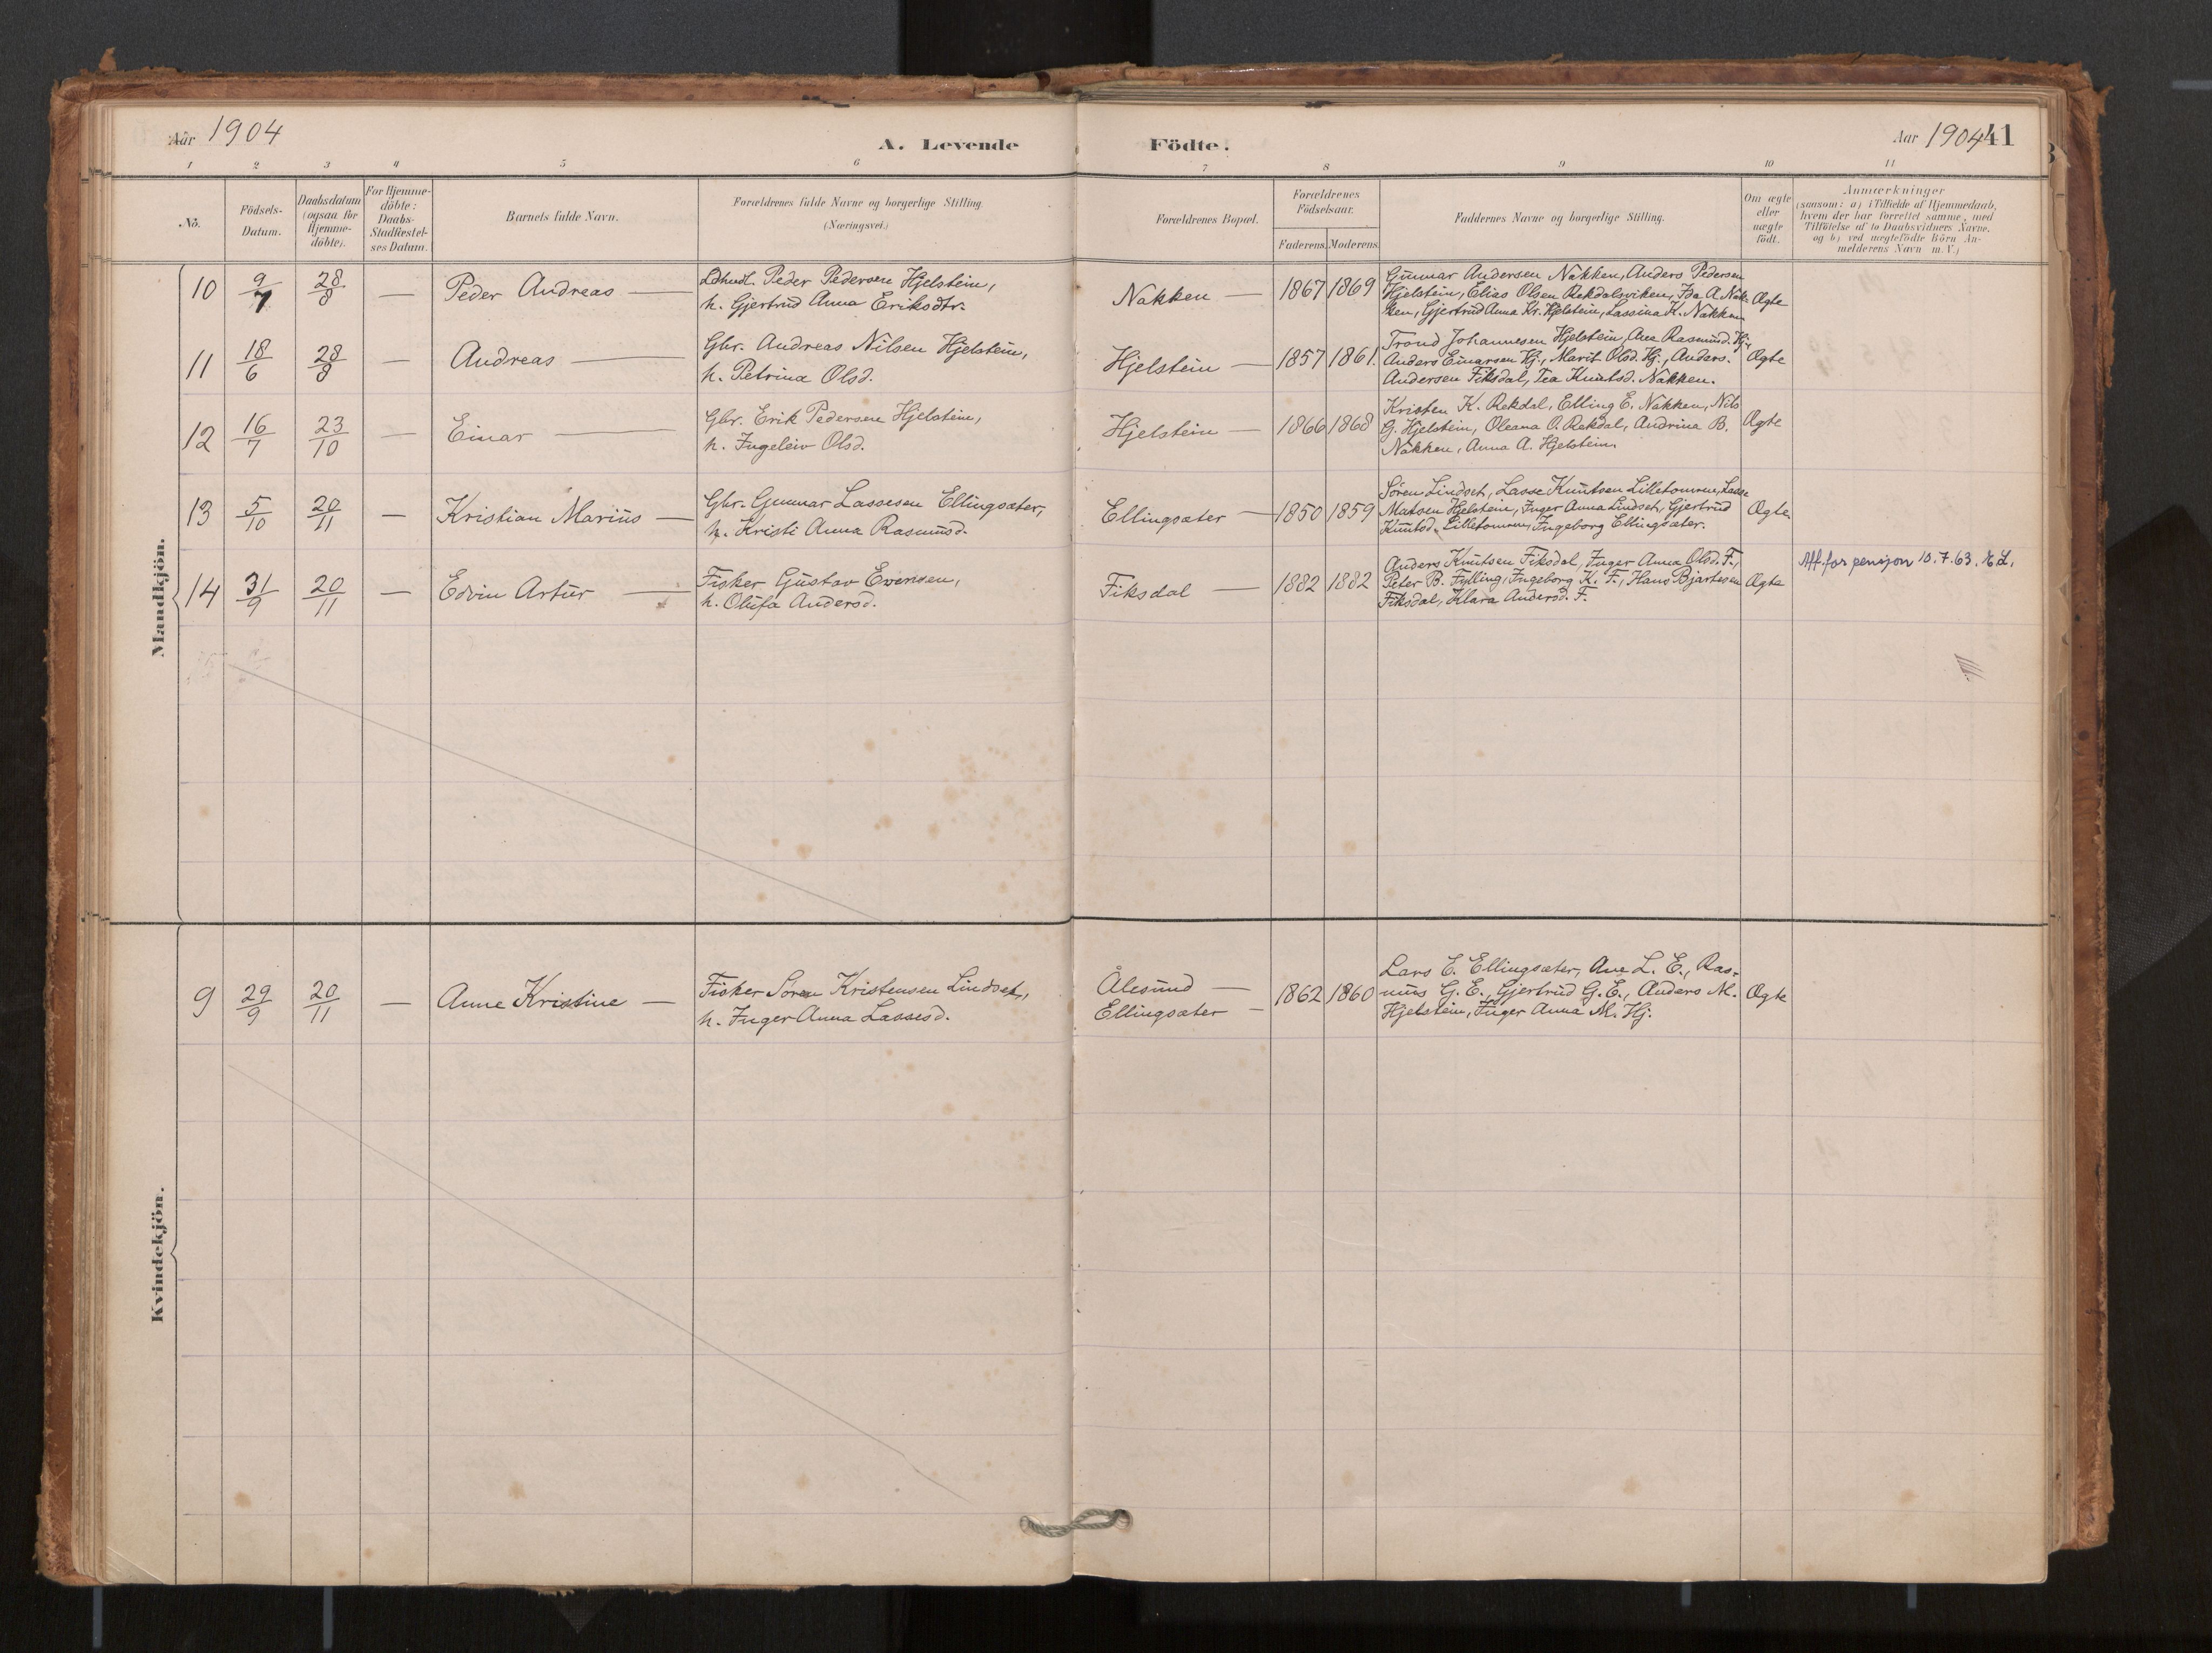 Aar 1904
A. Levende Födte.
Aar 1904 41
1 2 3 4 5 6 7 8 9 10 11
No. Födsels-Datum. Daabsdatum (ogsaa for Hjemmedöbte). For Hjemmedöbte: Daabs-Stadfæstelses Datum. Barnets fulde Navn. Forældrenes fulde Navne og borgerlige Stilling. (Næringsvei.) Forældrenes Bopæl. Forældrenes Födselsaar. Faderens. Moderens. Faddernes Navne og borgerlige Stilling. Om ægte eller uægte födt. Anmærkninger (saasom: a) i Tilfælde af Hjemmedaab, hvem der har forrettet samme, med Tilföielse af to Daabsvidners Navne, og b) ved uægtefödte Börn Anmelderens Navn m. V.)
Mandkjön.
10 9/7 28/8 — Peder Andreas —
Peder Pedersen Hjelstein,
h. Gjertrud Anna Eriksdtr.
Nakken — 1867 1869
Gunnar Andersen Nakken, Anders Pedersen
Hjelstein, Elias Olsen Rekdalsviken, Ida A. Nak-
ken, Gjertrud Anna Kr. Hjelstein, Lassina K. Nakken
Ægte
11 18/6 28/8 — Andreas —
Gbr. Andreas Nilsen Hjelstein,
h. Petrina Olsd.
Hjelstein — 1857 1861.
Trond Johannesen Hjelstein, Ane Rasmusd. Hj.,
Anders Einarsen Hj., Marit Olsd. Hj., Anders
Andersen Fiksdal, Tea Knutsd. Nakken.
Ægte
12 16/7 23/10 — Einar —
Gbr. Erik Pedersen Hjelstein,
h. Ingeleiv Olsd.
Hjelstein — 1866 1868
Kristen K. Rekdal, Elling E. Nakken, Nils
G. Hjelstein, Oleana O. Rekdal, Andrina B.
Nakken, Anna A. Hjelstein.
Ægte
13 5/10 20/11 — Kristian Marius —
Gbr. Gunnar Lassesen Ellingsæter,
h. Kristi Anna Rasmusd.
Ellingsæter — 1850 1859
Søren Lindset, Lasse Knutsen Lilletomren, Lasse
Matsen Hjelstein, Inger Anna Lindset, Gjertrud
Knutsd. Lilletomren, Ingeborg Ellingsæter.
Ægte
14 31/9 20/11 — Edvin Artur —
Fisker Gustav Evensen,
h. Olufa Andersd.
Fiksdal — 1882 1882
Anders Knutsen Fiksdal, Inger Anna Olsd. F.,
Peter B. Fylling, Ingeborg K. F., Hans Bjartesen
Fiksdal, Klara Andersd. F.
Ægte
Att. for pensjon 10.7.63.
Kvindekjön.
9 29/9 20/11 — Anne Kristine —
Fisker Søren Kristensen Lindset,
h. Inger Anna Lassesd.
Ålesund —
Ellingsæter —
1862 1860
Lars E. Ellingsæter, Ane L. E., Ras-
mus G. E., Gjertrud G. E., Anders M.
Hjelstein, Inger Anna M. Hj.
Ægte